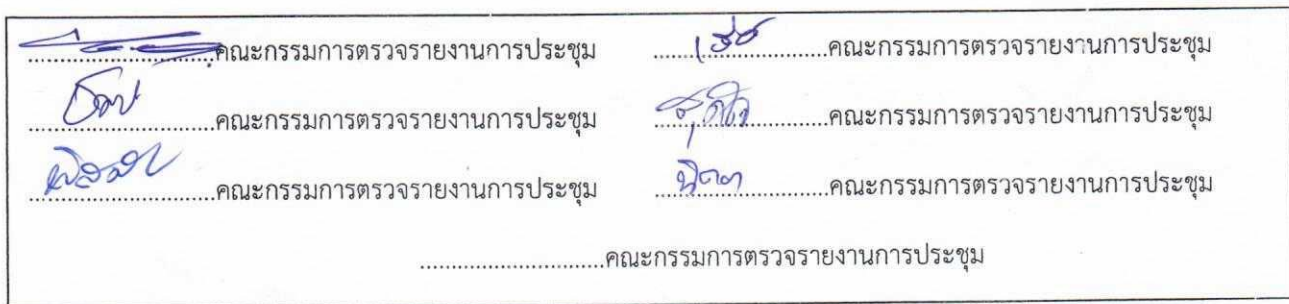 ...........................คณะกรรมการตรวจรายงานการประชุม ...........................คณะกรรมการตรวจรายงานการประชุม
...........................คณะกรรมการตรวจรายงานการประชุม ...........................คณะกรรมการตรวจรายงานการประชุม
...........................คณะกรรมการตรวจรายงานการประชุม ...........................คณะกรรมการตรวจรายงานการประชุม
...........................คณะกรรมการตรวจรายงานการประชุม